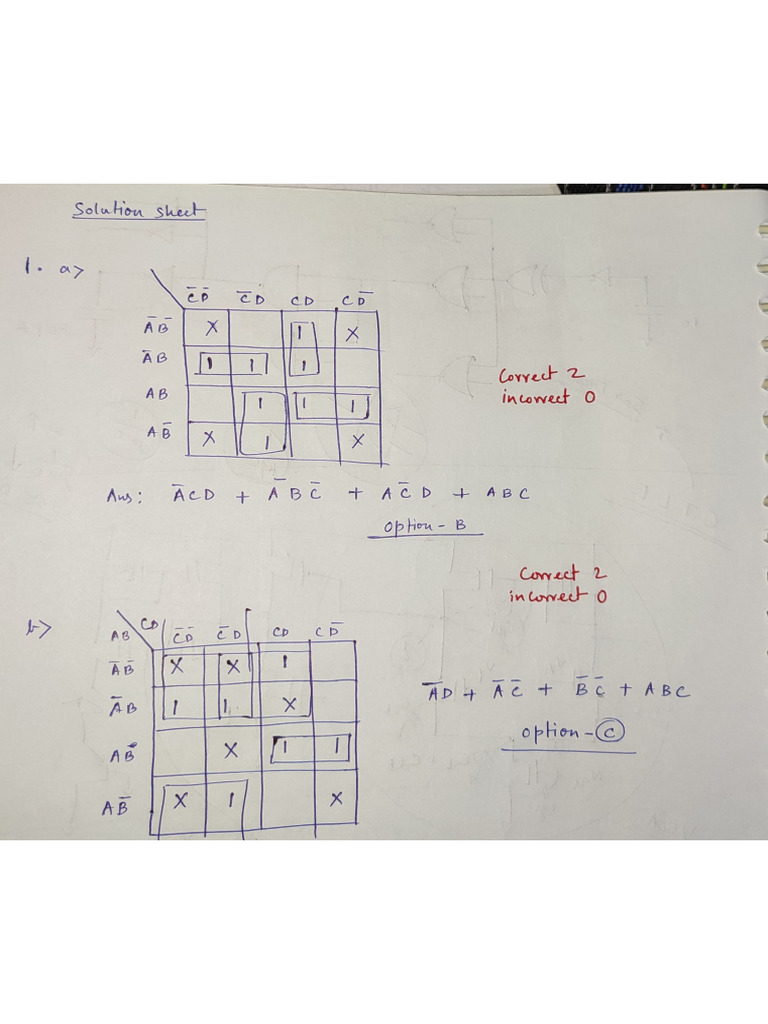 Solution sheet
1. a>
C̅D̅ C̅D CD CD̅
A̅B̅ X 1 X
A̅B 1 1 1
AB 1 1 1
AB̅ X 1 X
Correct 2
incorrect 0
Ans: A̅CD + A̅BC̅ + AC̅D + ABC
option - B
Correct 2
incorrect 0
b>
AB CD C̅D̅ C̅D CD CD̅
A̅B̅ X X 1
A̅B 1 1 X
AB X 1 1
AB̅ X 1 X
A̅D + A̅C̅ + B̅C̅ + ABC
option - C